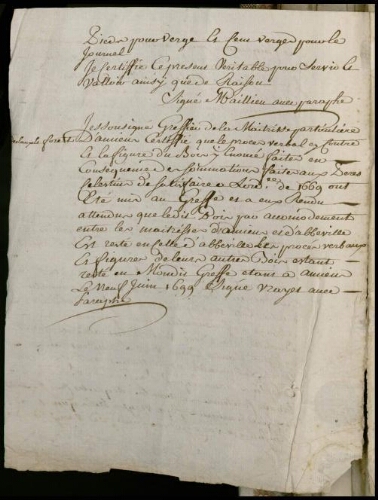 Pieds pour verge et Cent verges pour le
Journal
Je Certiffie Le present Veritable pour Servir Et
Valloir ainsy que de Raison
Signé Maillieu avec paraphe
Je Soussigné Greffier de la Maitrise particuliere
d'amiens Certiffie que le procez verbal cy Contre
et la figure du Bois y Enoncé faites En
Consequence de Sommations faites aux
Celestins de Satisfaire a de 1669 ont
Eté mis au Greffe et a Eux Rendu
attendu que ledit Bois par
entre les maitrises d'amiens et d'abbeville
Est resté En celle d'abbeville Les procez verbaux
Et figures de leurs autres Bois Estant
resté En Mondit Greffe et ans a amiens
Le Neuf Juin 1699 Signé avec
Paraphe